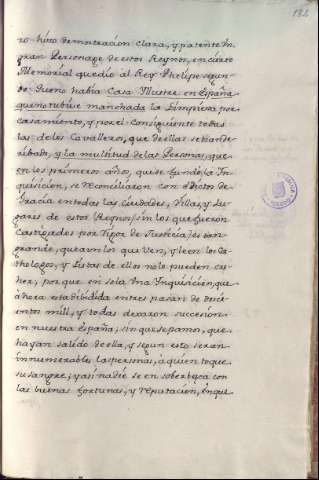 182
ro hizo demostracion clara, y patente Un
gran Personage de estos Reynos, en cierto
Memorial que dió al Rey Phelipe segun-
do: Que no había Casa Illustre en España
que no tubiese manchada la limpieza por
casamiento, y por el consiguiente todas
las de los Cavalleros, que de ellas se han de-
ribado, y la multitud de las Personas, que
en los primeros años, que se fundó la In-
quisicion, se reconciliaron con edictos de
Gracia en todas las Ciudades, Villas, y Lu-
gares de estos Reynos, sin los que fueron
Castigados por rigor de Justicia, es tan
grande, que aun los que ven, y leen los Ca-
thologos, y Listas de ellos no lo pueden cre-
her, por que en sola Una Inquisicion, que
ahora está dibidida en tres pasan de doci-
entos mill, y todas dexaron sucesion
en nuestra España, sin que sepamos, que
hayan salido de ella, y segun esto seran
innumerables las personas, á quien toque
su sangre; y asi nadie se en soberbezca con
las buenas fortunas, y reputacion, en qu